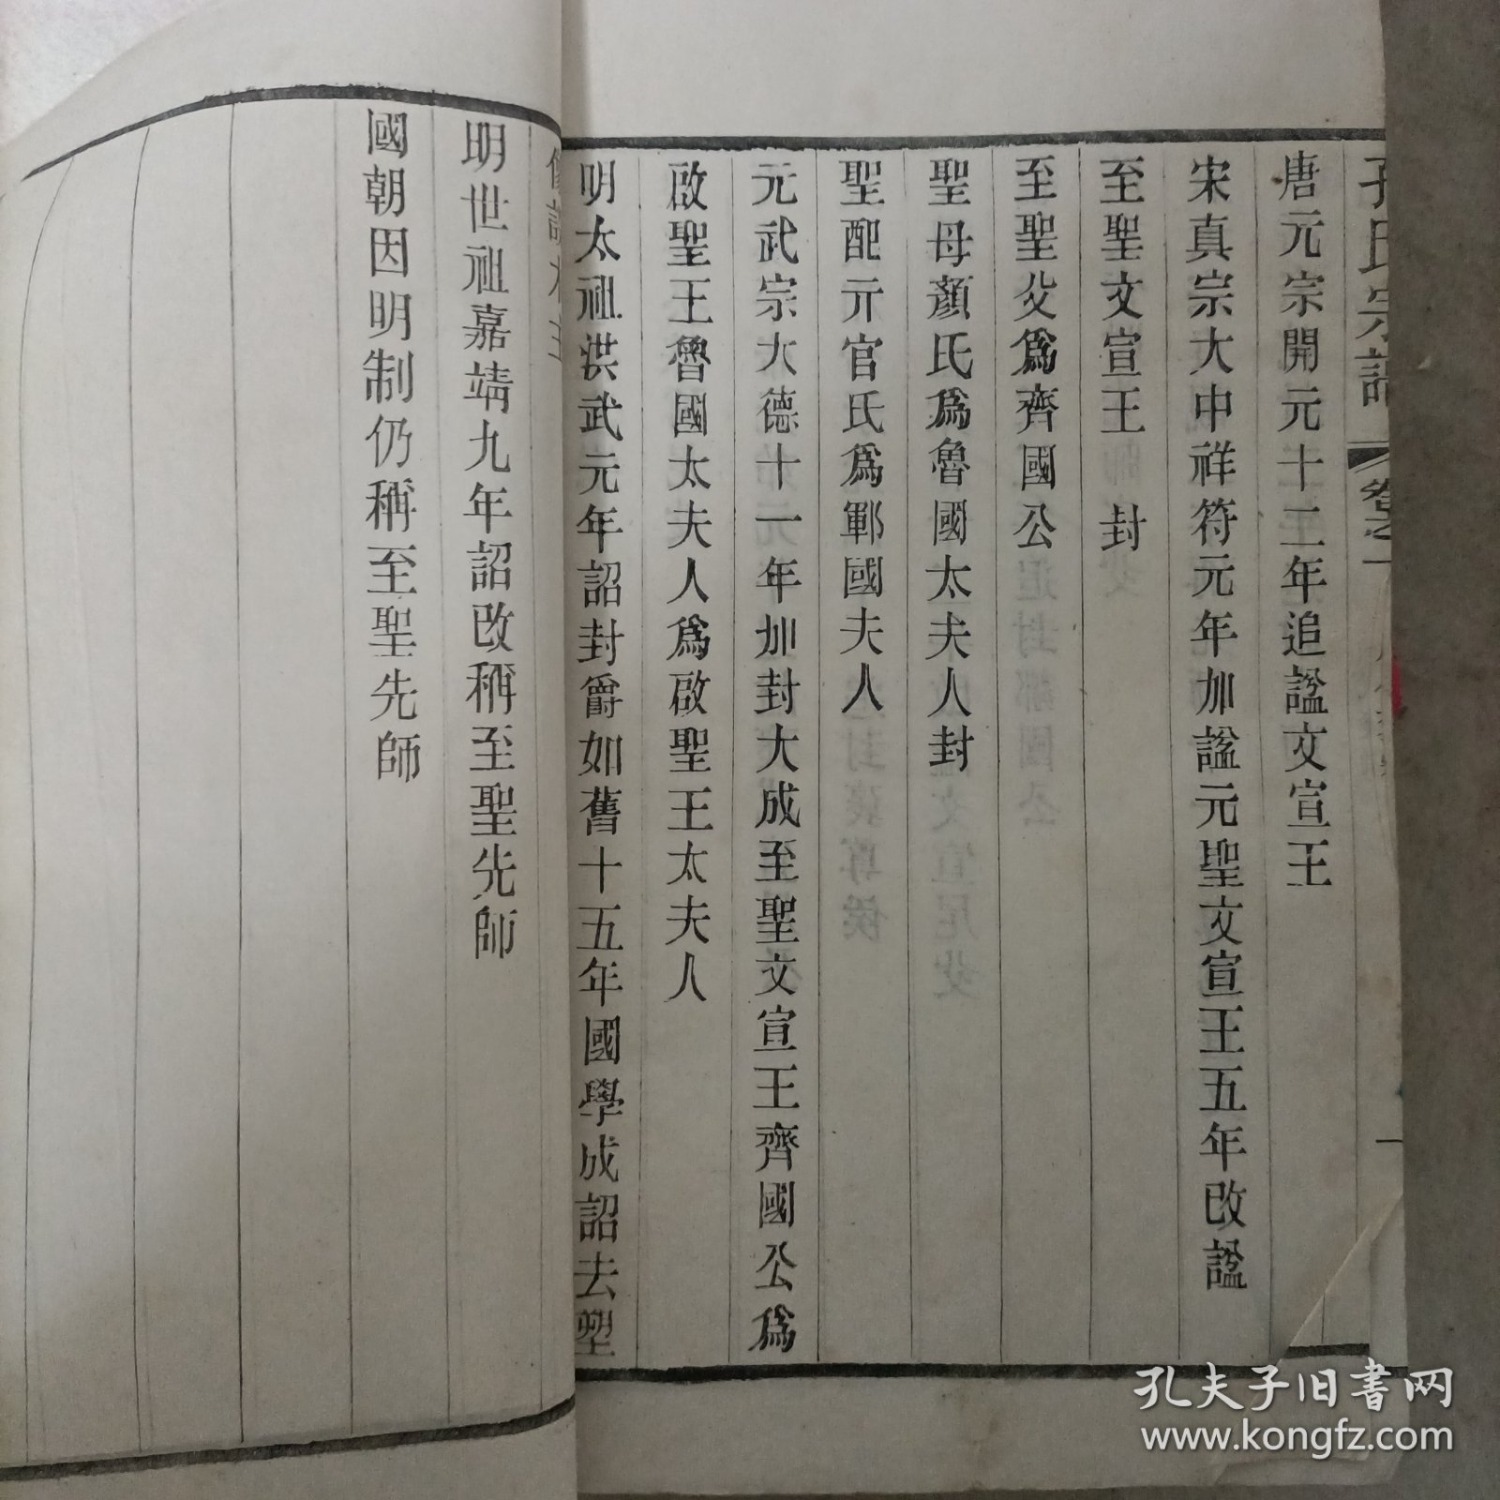 孔氏宗譜 卷之一
一
唐元宗開元十二年追諡文宣王
宋真宗大中祥符元年加諡元聖文宣王五年改諡
至聖文宣王 封
至聖父爲齊國公
聖母顏氏爲魯國太夫人封
聖配亓官氏爲鄆國夫人
元武宗大德十一年加封大成至聖文宣王齊國公爲
啟聖王魯國太夫人爲啟聖王太夫人
明太祖洪武元年詔封爵如舊十五年國學成詔去塑
像設木主
明世祖嘉靖九年詔改稱至聖先師
國朝因明制仍稱至聖先師
孔夫子旧書网
www.kongfz.com